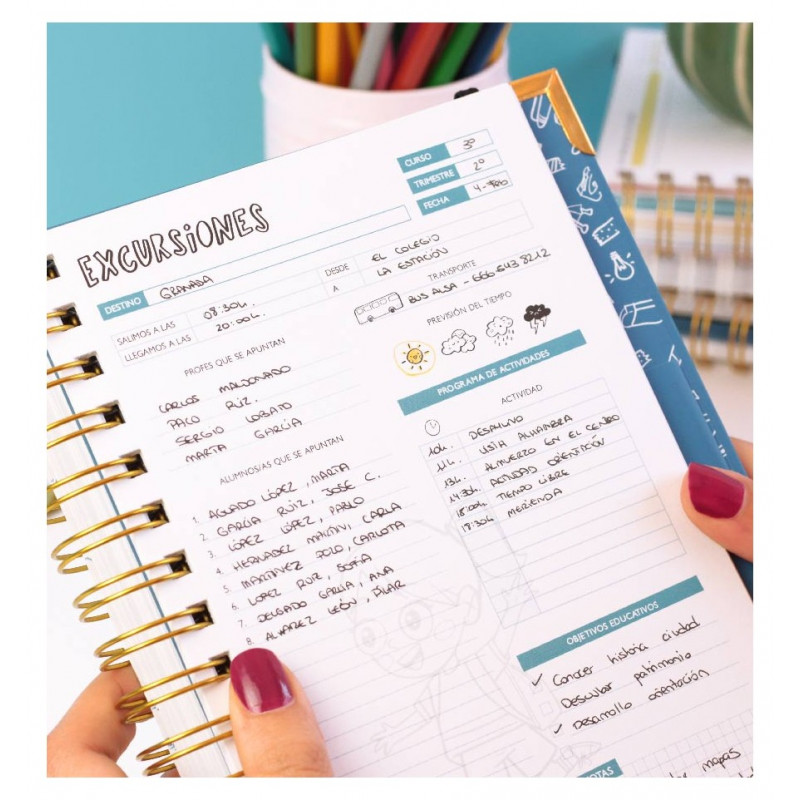 EXCURSIONES
CURSO 3º
TRIMESTRE 2º
FECHA 4-Feb
DESTINO GRANADA
DESDE EL COLEGIO
A LA ESTACIÓN
SALIMOS A LAS 08:30h.
LLEGAMOS A LAS 20:00h.
TRANSPORTE
BUS ALSA - 666 643 8212
PREVISIÓN DEL TIEMPO
PROFES QUE SE APUNTAN
CARLOS MALDONADO
PACO RUIZ.
SERGIO LOBATO
MARTA GARCÍA
ALUMNOS/AS QUE SE APUNTAN
1. AGUADO LÓPEZ, MARTA
2. GARCÍA RUIZ, JOSE C.
3. LÓPEZ LÓPEZ, PABLO
4. HERNANDEZ MARTIN, CARLA
5. MARTINEZ POLO, CARLOTA
6. LOPEZ RUIZ, SOFIA
7. DELGADO GARCÍA, ANA
8. ALVAREZ LEÓN, PILAR
PROGRAMA DE ACTIVIDADES
ACTIVIDAD
10h. DESAYUNO
11h. VISITA ALHAMBRA
13h. ALMUERZO EN EL CENTRO
14:30h ACTIVIDAD ORIENTACIÓN
TIEMPO LIBRE
MERIENDA
OBJETIVOS EDUCATIVOS
Conocer historia ciudad
Descubrir patrimonio
Desarrollo orientación
NOTAS
mapas